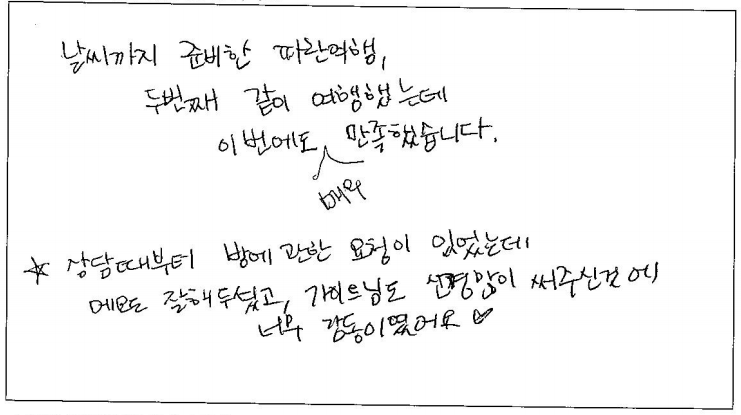 날씨까지 준비한 따란여행,
두번째 같이 여행했는데
이번에도 매우 만족했습니다.
☆ 상담때부터 방에 관한 요청이 있었는데
메모도 잘해두셨고, 가이드님도 신경많이 써주신것에
너무 감동이였어요 ♡